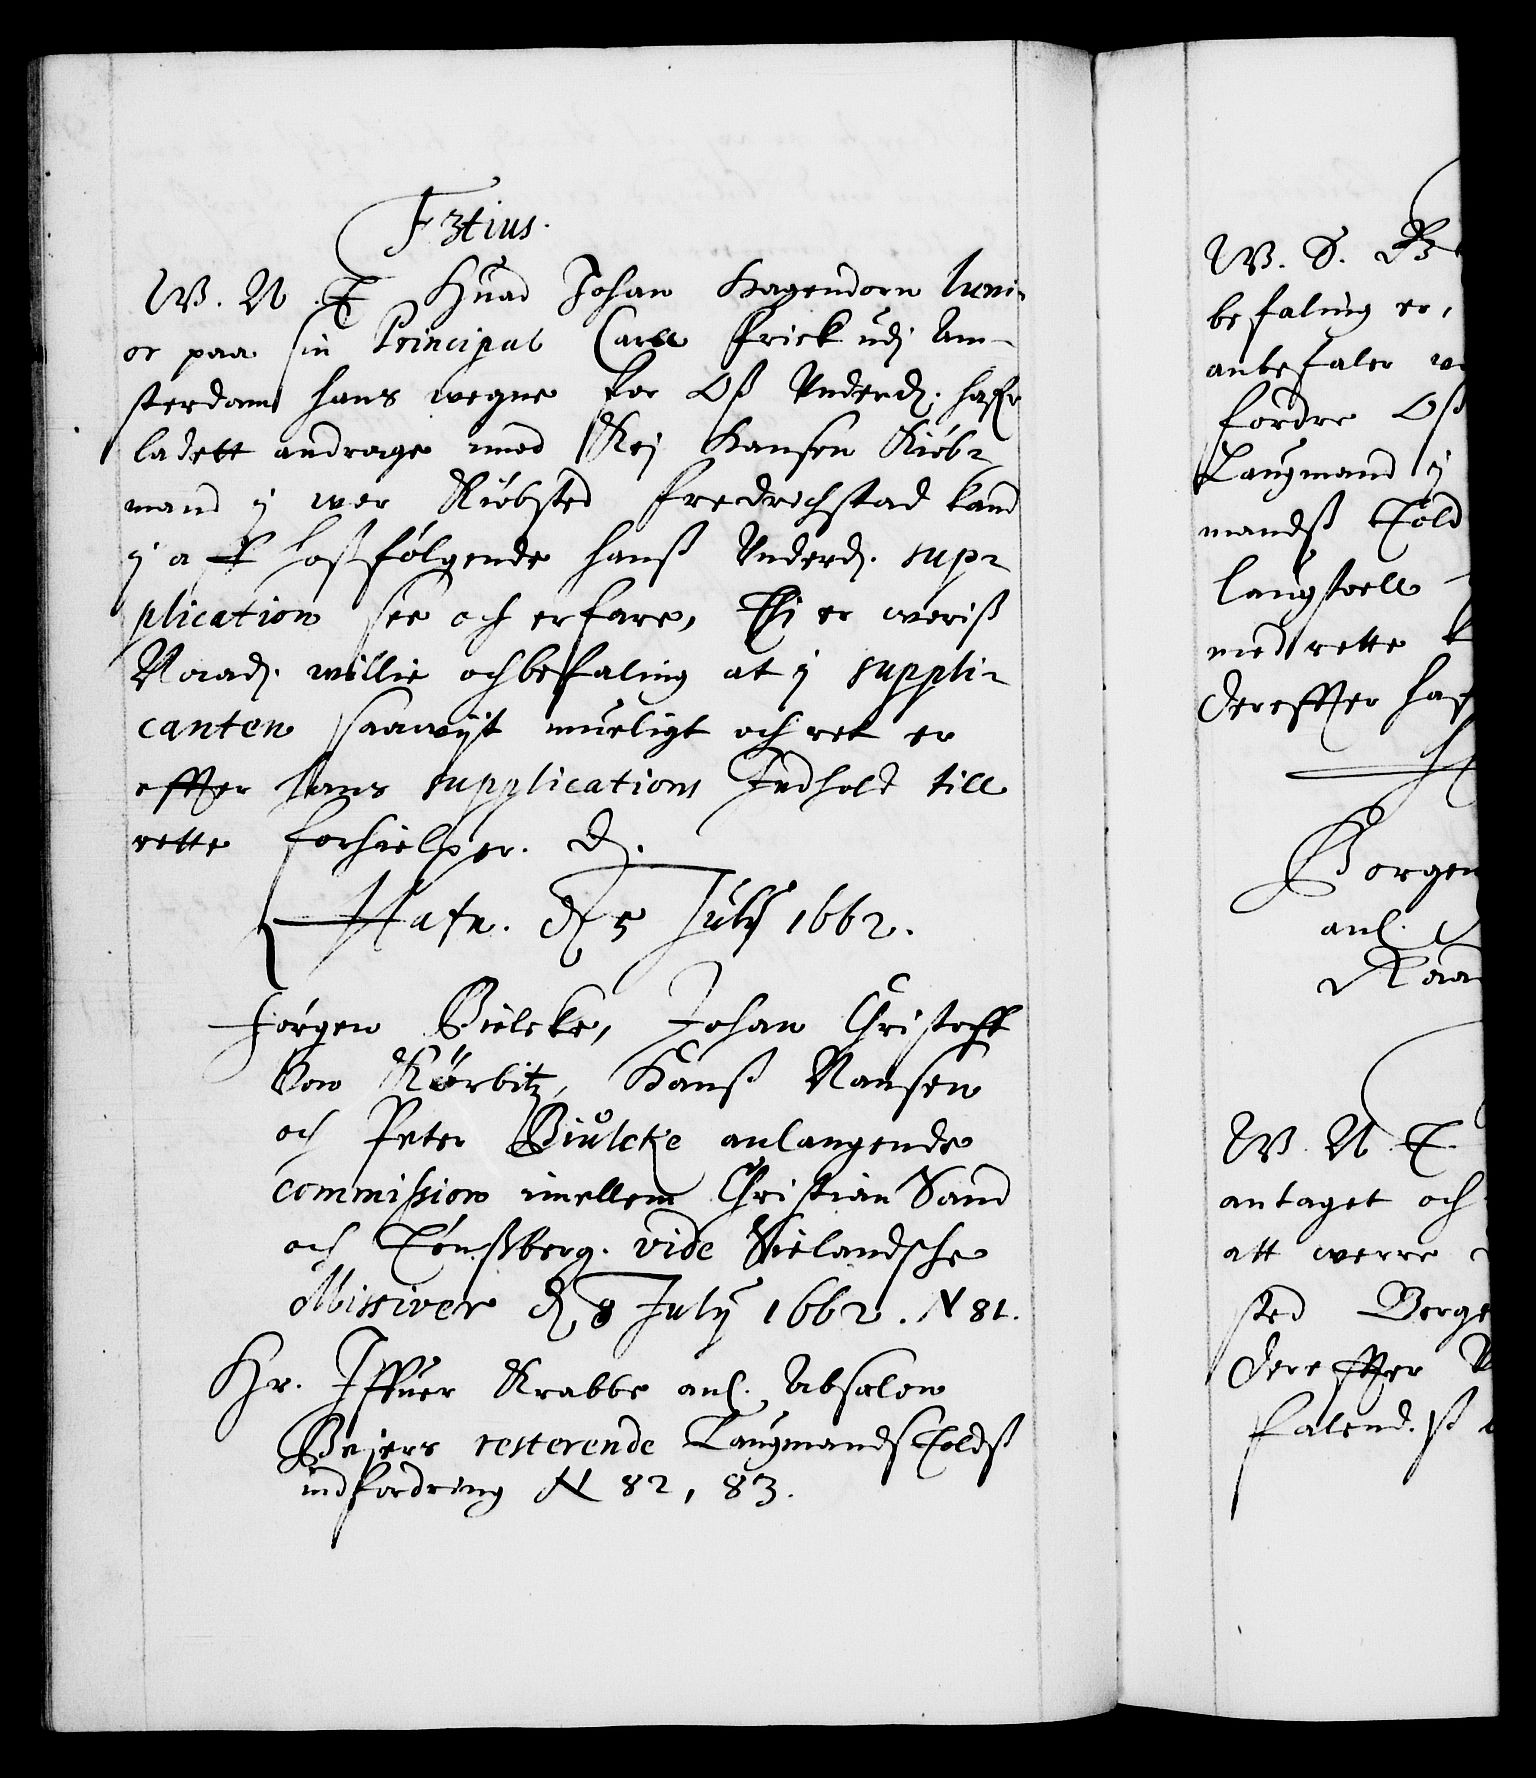 F3tius.
W. N. T. Huad Johan Hagendorn Iuni-
or paa sin Principal Carll Frick udj Am-
sterdam hans wegne for Oß Underd. hafr
ladett andrage imod Rej Hansen Kiöb-
mand y wor Kiöbsted Fredrichstad kand
y af hoßfölgende hanß Underd. sup-
plication see och erfare, Thi er woriß
Naad. willie och befaling at y suppli-
canten saawijt mueligt och ret er
effter hans supplications Indhold till
rette forhielper. D.
Hafn. d. 5 July 1662.
Jörgen Bielcke, Johan Christoff
von Körbitz, Hanß Nansen
och Peter Biülcke anlangende
commission imellem Christian Sand
och Tönßberg. vide Sielandsche
Missiver d. 8 July 1662. N 81.
Hr. Iffuer Krabbe anl. Absalon
Bejers resterende Laugmands Toldß
indfordring N 82, 83.
W. S. 
befaling er,
anbefaler
fordre Oß
Laugmand y
mandß Told
langt well
med rette
dereffter haf
Borgen
anl.
W. N. T.
antaget och
att werre
sted Berge
dereffter
falend. ß